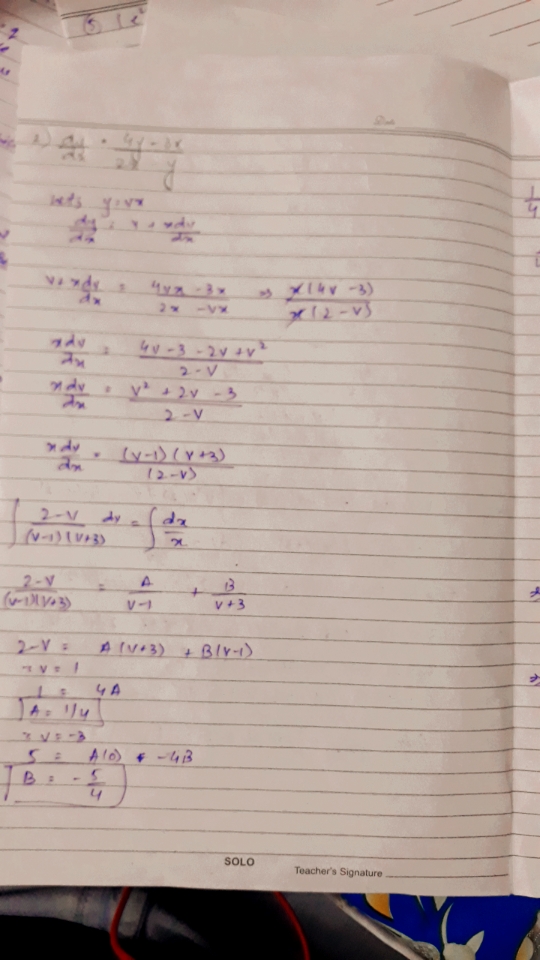 2) dy/dx = 4y-3x / 2x-y
let y = vx
dy/dx = v + xdv/dx
v + xdv/dx = 4vx - 3x / 2x - vx ⇒ x(4v - 3) / x(2 - v)
xdv/dx = 4v - 3 - 2v + v² / 2 - v
xdv/dx = v² + 2v - 3 / 2 - v
xdv/dx = (v-1)(v+3) / (2-v)
∫ 2-v / (v-1)(v+3) dv = ∫ dx/x
2-v / (v-1)(v+3) = A / v-1 + B / v+3
2-v = A(v+3) + B(v-1)
v = 1
1 = 4A
A = 1/4
v = -3
5 = A(0) + -4B
B = - 5/4
SOLO
Teacher's Signature